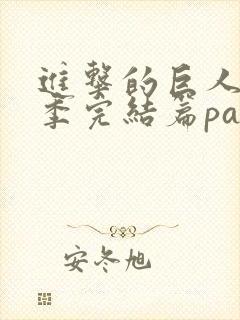 進擊的巨人
季完結篇pa
安冬旭